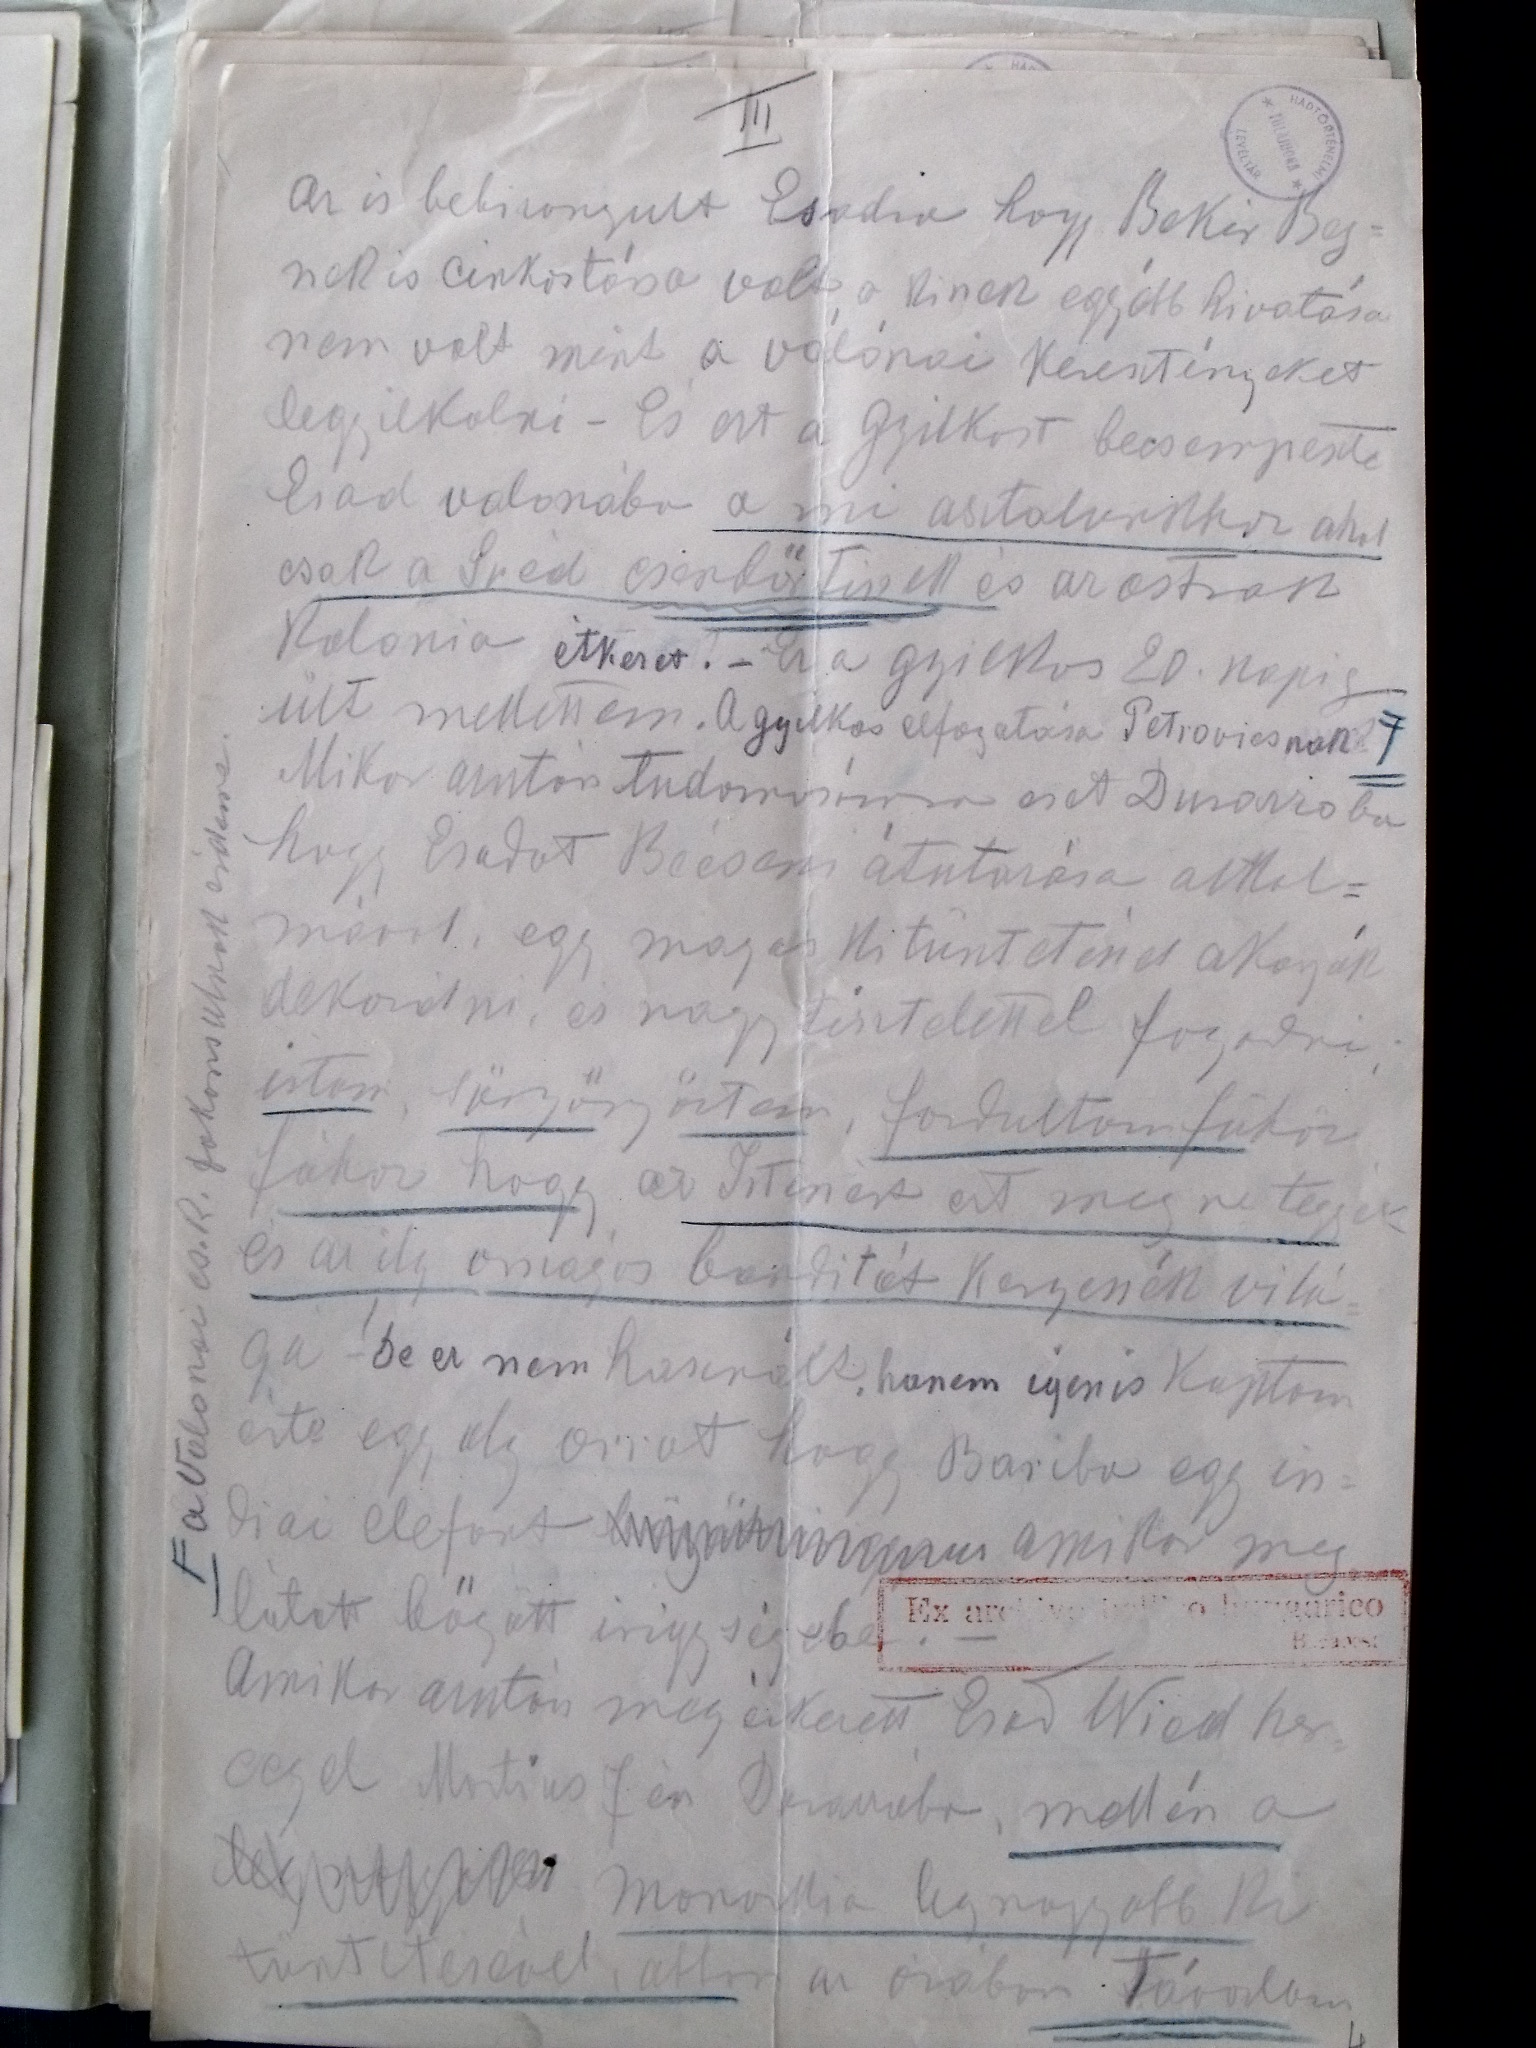 III
HADTÖRTÉNELMI LEVÉLTÁR
az is bebizonyult Esadra hogy Bekir Beg=
nek is cinkostársa volt, a kinek egyébb hivatása
nem volt mint a válónai keresztényeket
legyilkolni – És ezt a gyilkost becsempeszte
Esad valonába a mi asztalunkhoz ahol
csak a Svéd csendőrtisztek és az osztrák
kolonia étkezet. – Ez a gyilkos 20. napig
ült mellettem. A gyilkos elfogatása Petrovicsnak F
Mikor aztán tudomásomra eset Durazzoba
hogy Esadot Bécseni átutazása alkal=
mával, egy magas kitüntetéssel akarják
dekorálni, és nagy tisztelettel fogadni,
irtam, sürgönyöztem, fordultam fühöz
fához hogy az Istenért ezt meg ne tegyék
és az ily országos banditát kergessék vilá=
gá – de ez nem használt, hanem igenis kaptam
érte egy oly orrot hogy Bariba egy in=
diai elefánt amikor meg
látott bőgött irigységébe. –
Amikor aztán megérkezett Esad Wied her=
cegel Martius 7 én Durazzoba, mellén a
Monarkia legnagyobb ki
tüntetésével, abban az órában Távoztam
F a Valonai cs.K. fokonsulnak érdeme.
Ex archivo bellico hungarico
4